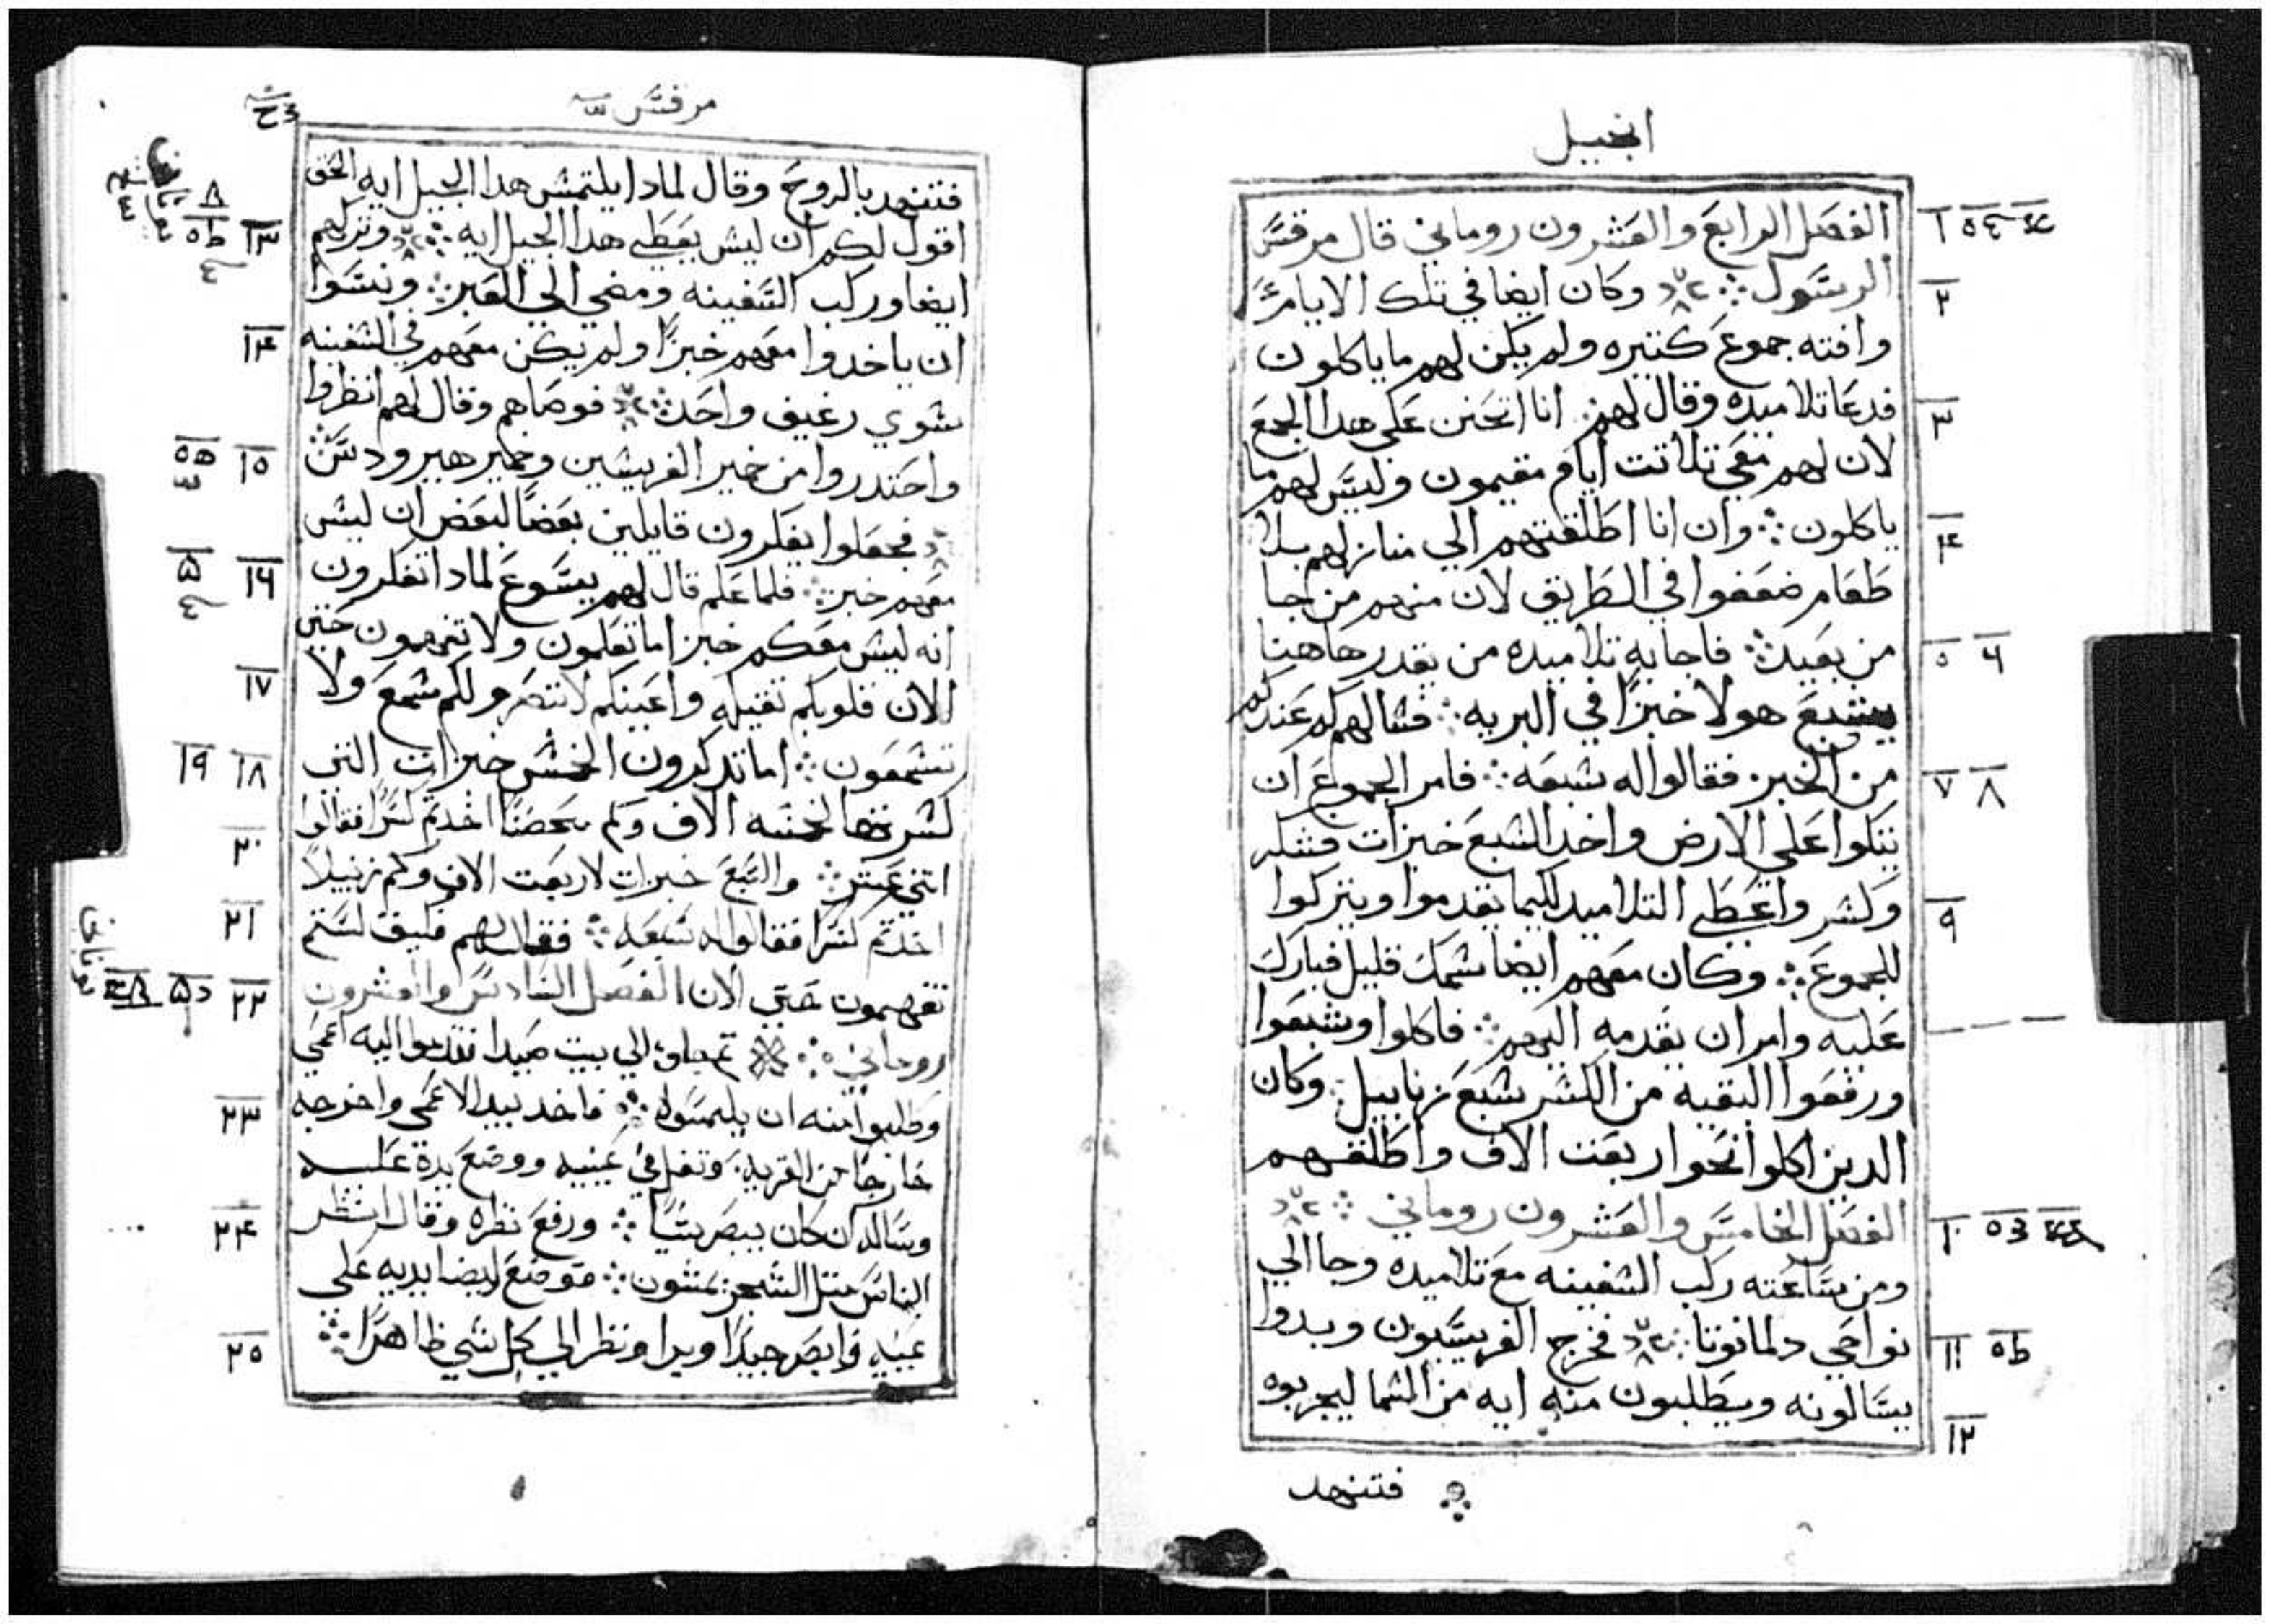 انجيل
الفصل الرابع والعشرون روماني قال مرقس
الرسول وكان ايضا في تلك الايام
وافته جموع كتيره ولم يكن لهم ما ياكلون
فدعا تلاميده وقال لهم انا اتحنن علي هدا الجمع
لان لهم معي تلاتت ايام مقيمون وليس لهم ما
ياكلون وان انا اطلقتهم الي منازلهم بلا
طعام ضعفوا في الطريق لان منهم من جا
من بعيد فاجابه تلاميده من يقدر هاهنا
يشبع هولا خبزا في البريه فسالهم كم عندكم
من الخبز فقالوا له سبعه فامر الجموع ان
يتكوا علي الارض واخد السبع خبزات فشكر
وكسر واعطي التلاميد لكيما يقدموا ويتركوا
للجموع وكان معهم ايضا سمك قليل فبارك
عليه وامر ان يقدمه اليهم فاكلوا وشبعوا
ورفعوا البقيه من الكسر سبع زنابيل وكان
الدين اكلوا نحوا ربعت الاف واطلقهم
الفصل الخامس والعشرون روماني
ومن ساعته ركب السفينه مع تلاميده وجا الي
نواحي دلمانوتا فخرج الفريسيون وبدوا
يسالونه ويطلبون منه ايه من السما ليجربوه
فتنهد
١
٢
٣
٤
٥ ٦
٧ ٨
٩
١٠
١١
١٢
مرقس
فتنهد بالروح وقال لمادا يلتمس هدا الجيل ايه الحق
اقول لكم ان ليس يعطي هدا الجيل ايه وتركهم
ايضا وركب السفينه ومضي الي العبر ونسوا
ان ياخدوا معهم خبزا ولم يكن معهم في السفينه
سوي رغيف واحد فوصاهم وقال لهم انظروا
واحتدروا من خمير الفريسين وخمير هيرودس
فجعلوا يفكرون قايلين بعضا لبعض ان ليس
معهم خبز فلما علم قال لهم يسوع لمادا تفكرون
انه ليس معكم خبز اما تعلمون ولا تفهمون حتي
الان قلوبكم تقيله واعينكم لا تبصر ولكم سمع ولا
تسمعون اما تدكرون الخمس خبزات التي
كسرتها لخمسه الاف وكم اخدتم كسرا فقالوا
اتني عشر والسبع خبزات لاربعت الاف وكم زنبيلا
اخدتم كسرا فقالوا له سبعه فقال لهم فكيف لستم
تفهمون حتي الان الفصل السادس والعشرون
روماني الي بيت صيدا فقدموا اليه اعمي
وطلبوا منه ان يلمسوه فاخد بيد الاعمي واخرجه
خارجا من القريه وتفل في عينيه ووضع يده عليه
وساله ان كان يبصر شيا ورفع نظره وقال انظر
الناس متل الشجر يمشون فوضع ايضا يديه علي
عينيه فابصر جيدا وبرا ونظر الي كل شي ظاهرا
١٣
١٤
١٥
١٦
١٧
١٨ ١٩
٢٠
٢١
٢٢
٢٣
٢٤
٢٥